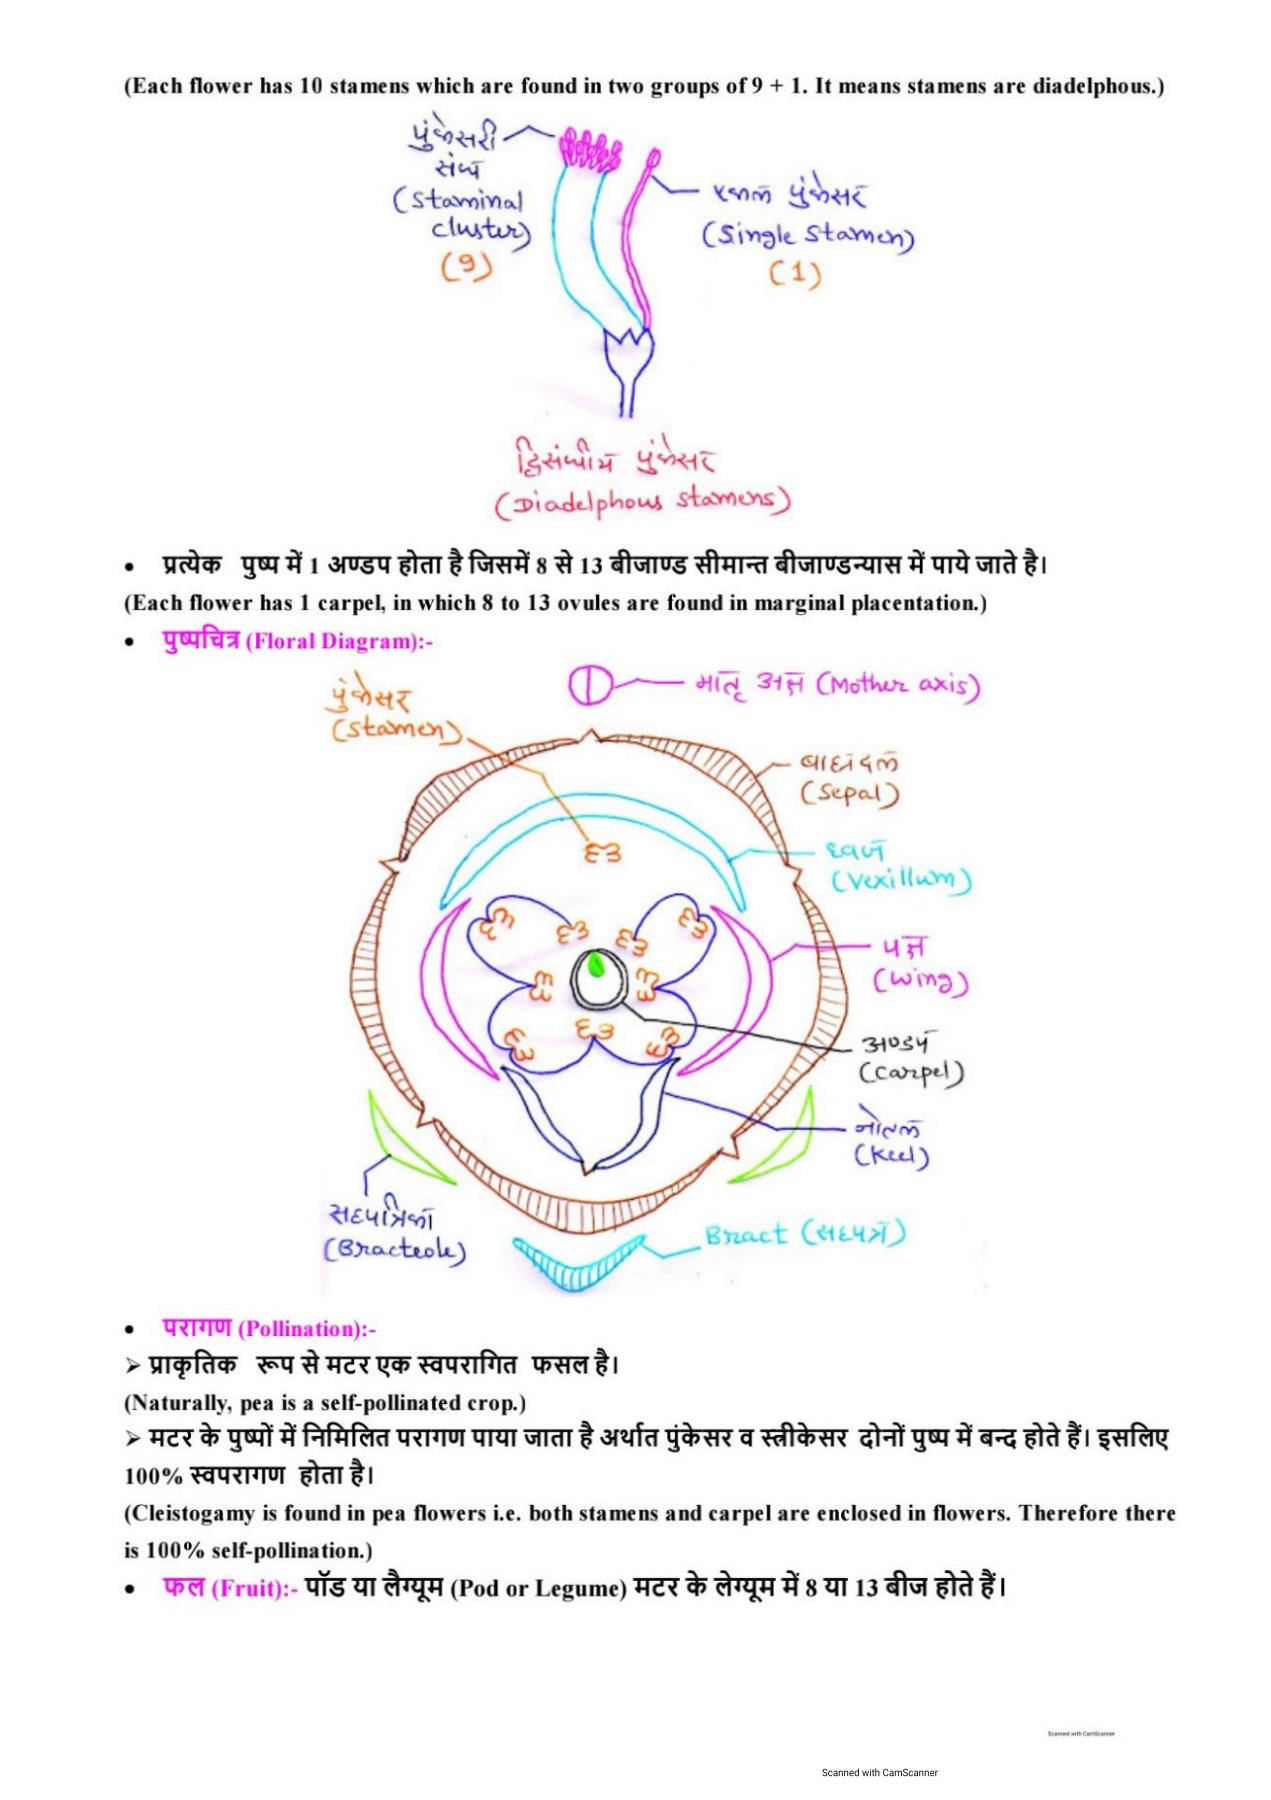 (Each flower has 10 stamens which are found in two groups of 9 + 1. It means stamens are diadelphous.)
पुंकेसरी
संघ
(Staminal
cluster)
(9)
एकल पुंकेसर
(Single Stamen)
(1)
द्विसंघीय पुंकेसर
(Diadelphous stamens)
• प्रत्येक पुष्प में 1 अण्डप होता है जिसमें 8 से 13 बीजाण्ड सीमान्त बीजाण्डन्यास में पाये जाते है।
(Each flower has 1 carpel, in which 8 to 13 ovules are found in marginal placentation.)
• पुष्पचित्र (Floral Diagram):-
मातृ अक्ष (Mother axis)
पुंकेसर
(Stamen)
बाह्यदल
(Sepal)
ध्वज
(Vexillum)
पक्ष
(Wing)
अण्डप
(Carpel)
नोतल
(Keel)
सहपत्रिका
(Bracteole)
Bract (सहपत्र)
• परागण (Pollination):-
➢ प्राकृतिक रूप से मटर एक स्वपरागित फसल है।
(Naturally, pea is a self-pollinated crop.)
➢ मटर के पुष्पों में निमिलित परागण पाया जाता है अर्थात पुंकेसर व स्त्रीकेसर दोनों पुष्प में बन्द होते हैं। इसलिए
100% स्वपरागण होता है।
(Cleistogamy is found in pea flowers i.e. both stamens and carpel are enclosed in flowers. Therefore there
is 100% self-pollination.)
• फल (Fruit):- पॉड या लैग्यूम (Pod or Legume) मटर के लेग्यूम में 8 या 13 बीज होते हैं।
Scanned with CamScanner
Scanned with CamScanner